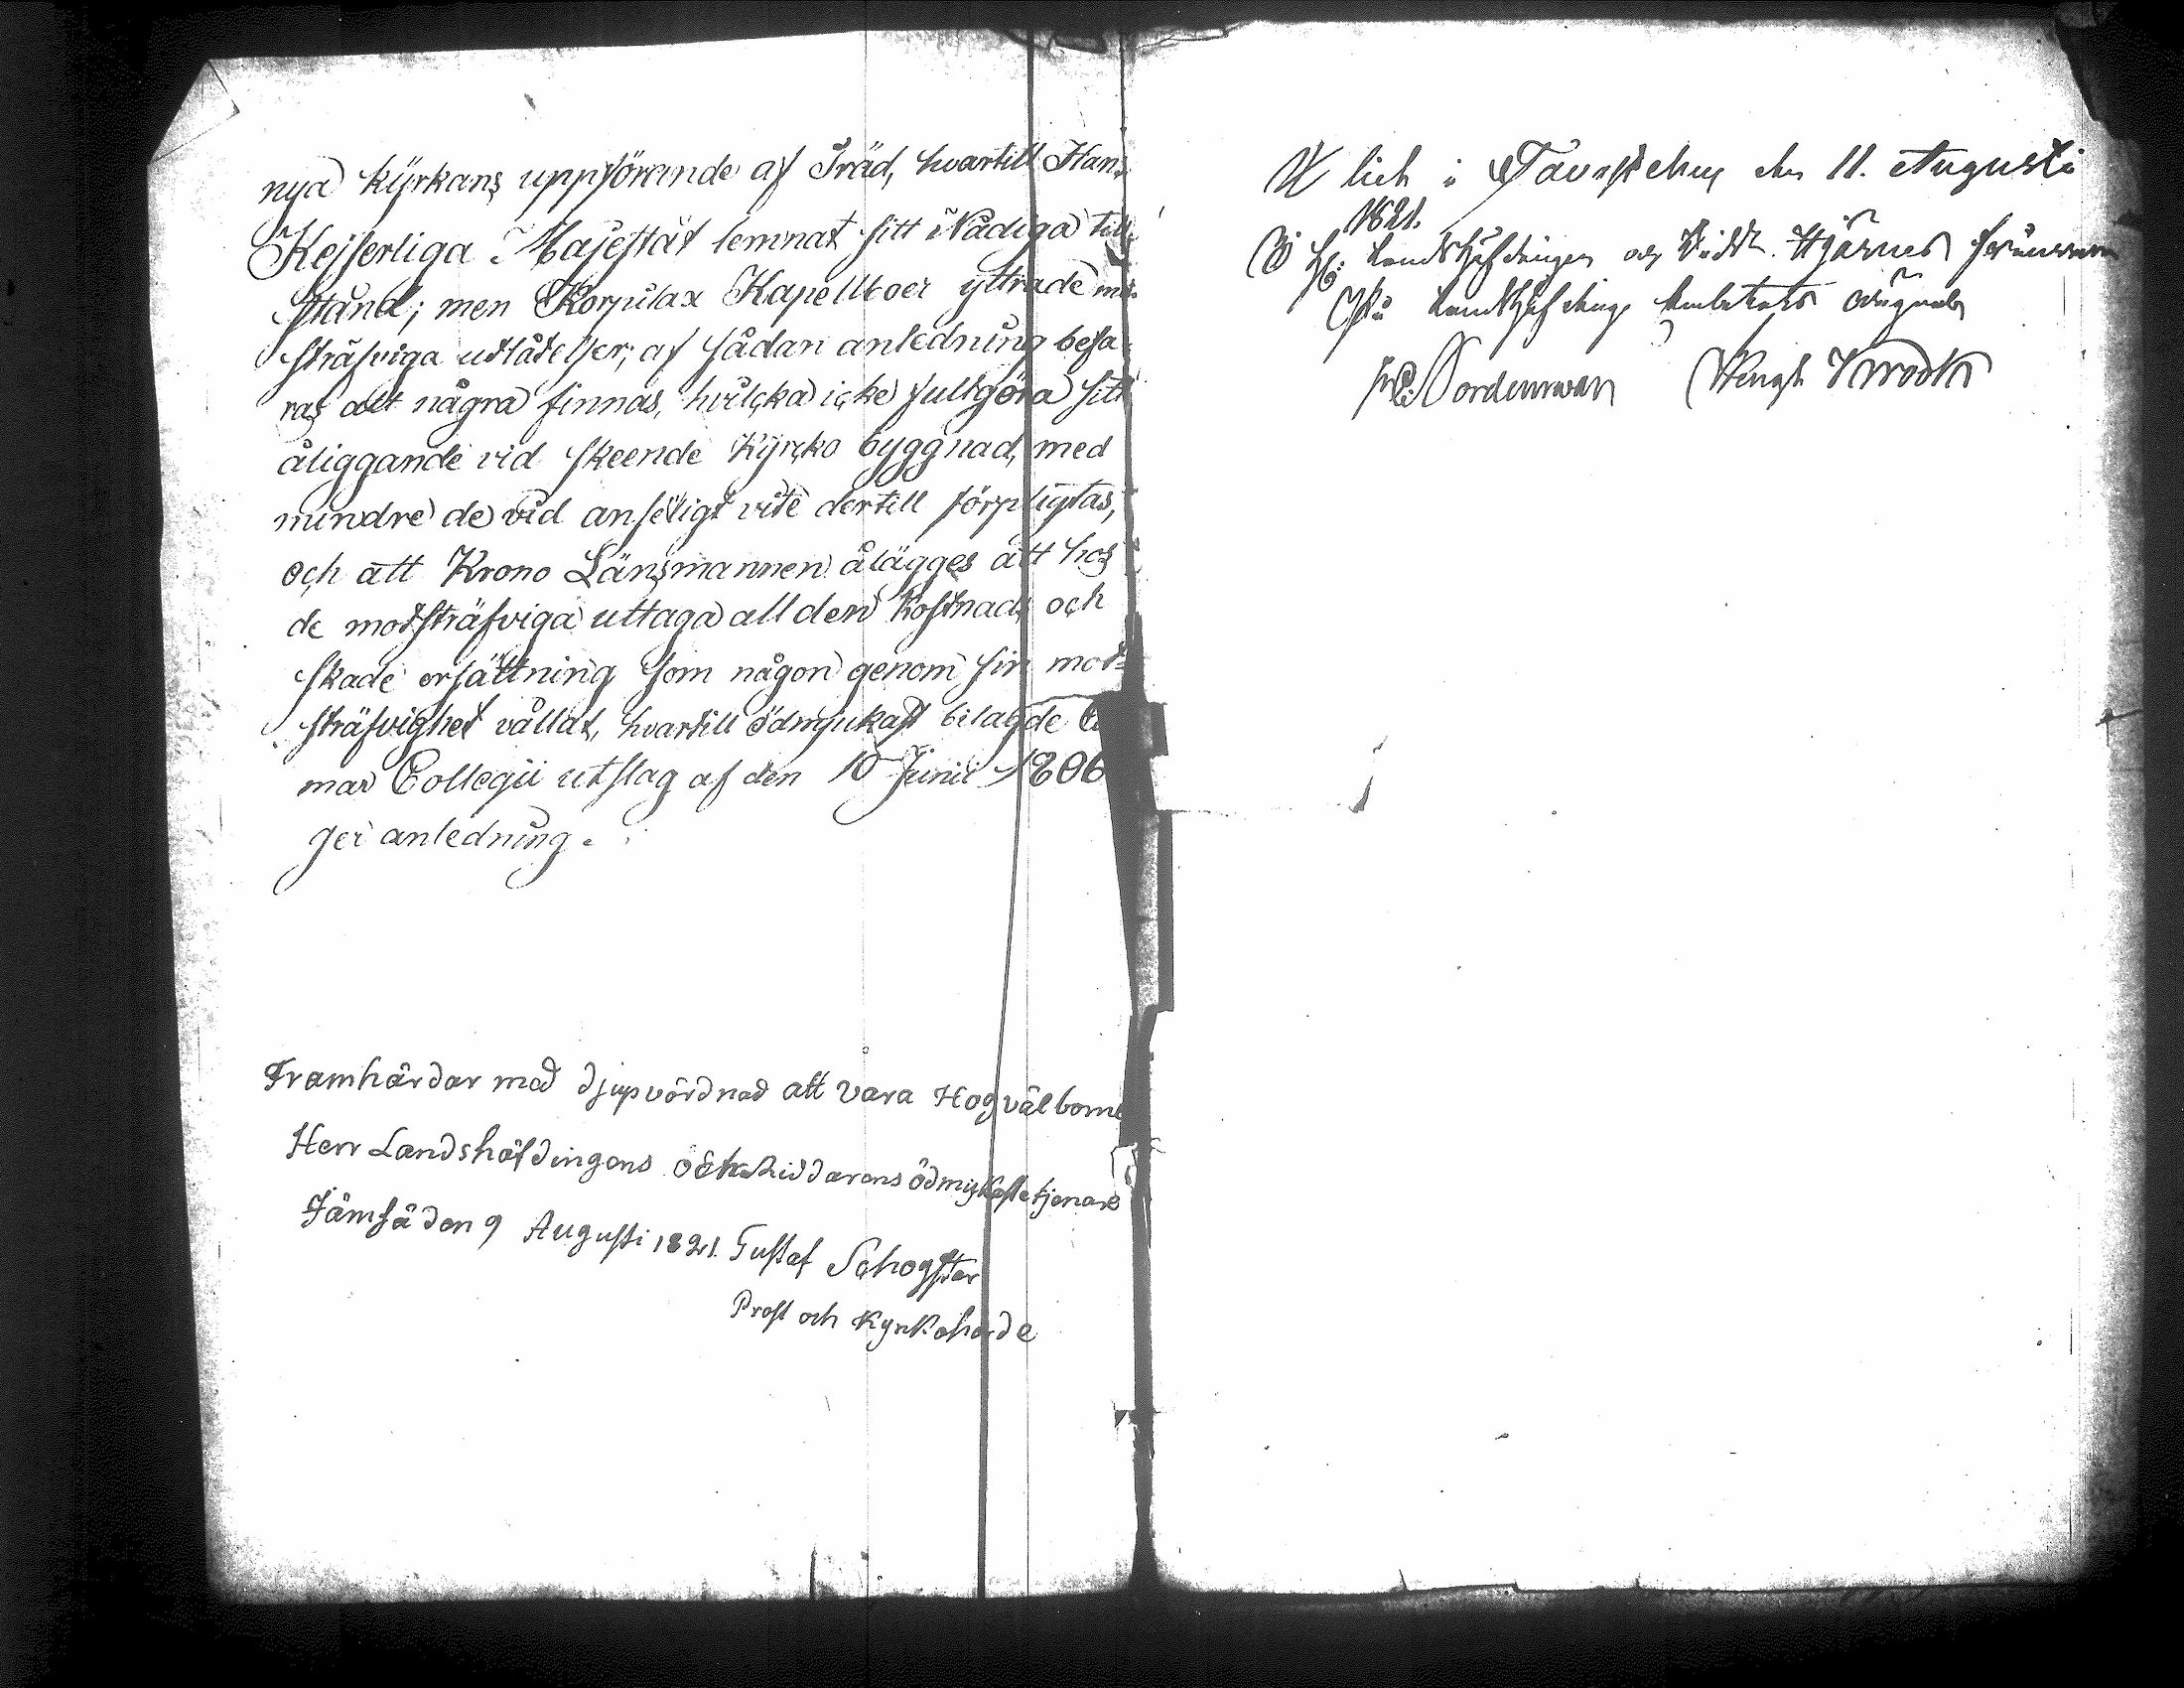 nya kyrkans uppförande af Träd, hvartill Hans
Kejserliga Majestät lemnat sitt Nådiga till
stånd; men Korpilax Kapellboer yttrade mot
sträfviga utlåtelser; af sådan anledning befa
ras att några finnas, hvilcka icke fullgöra sitt
åliggande vid skeende Kyrcko byggnad, med
mindre de vid anseligt vite dertill förpligtas,
och att Krono Länsmannen ålägges att hos
de motsträfviga uttaga all den Kostnads och
skade ersättning som någon genom sin mot=
sträfvighet vållat, hvartill ödmjukast bilagde
mar Collegii utslag af den 10 Junii 1806
ger anledning.
Framhärdar med djup vördnad att vara Högvälborne
Herr Landshöfdingens och Riddarens ödmjukaste tjenare
Jämsä den 9 Augusti 1821. Gustaf Schogster
Prost och Kyrkoherde
i Tavastehus den 11. Augusti
1821.
Landshöfdingen och Hjärnes frånvaro
På Landshöfdinge Embetets vägnar
Nordenswan Bengt